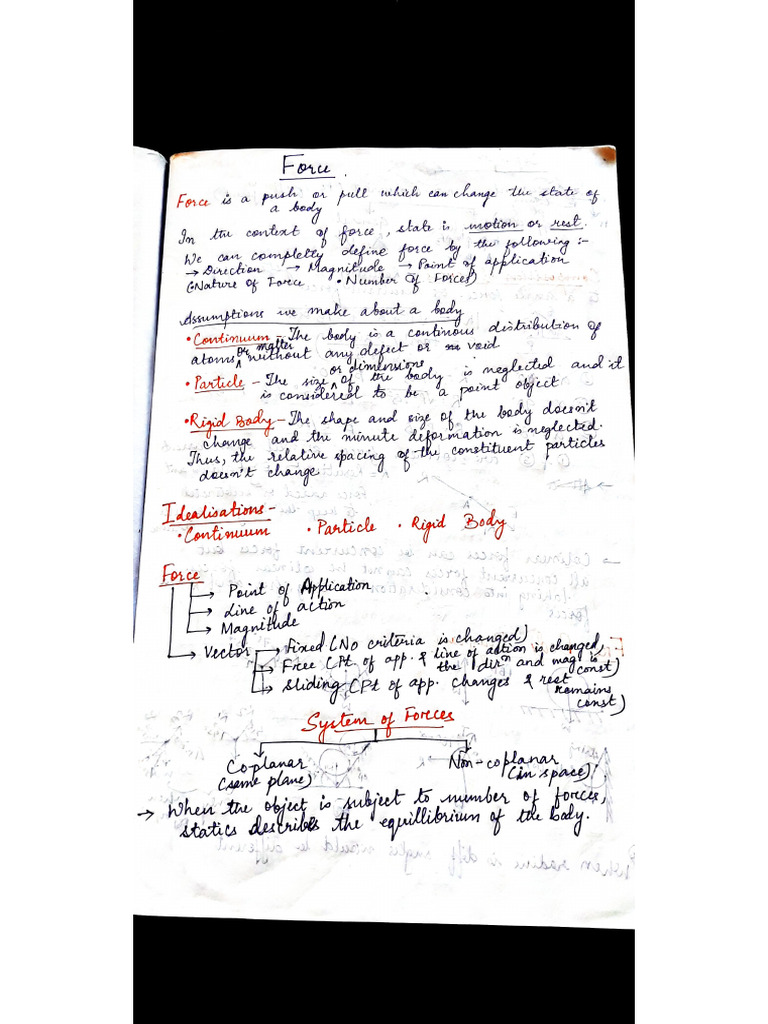 Force.
Force is a push or pull which can change the state of
a body
In the context of force, state is motion or rest.
We can completly define force by the following :-
→ Direction → Magnitude → Point of application
(Nature of Force • Number of Forces)
Assumptions we make about a body
• Continuum - The body is a continous distribution of
atoms or matter without any defect or void
• Particle - The size or dimensions of the body is neglected and it
is considered to be a point object
• Rigid Body - The shape and size of the body doesn't
change and the minute deformation is neglected.
Thus, the relative spacing of the constituent particles
doesn't change
Idealisations -
• Continuum • Particle • Rigid Body
Force
→ Point of Application
→ Line of action
→ Magnitude
→ Vector → Fixed (No criteria is changed)
→ Free (Pt of app. & line of action is changed,
the dirⁿ and mag is const)
→ Sliding (Pt of app. changes & rest
remains const)
System of Forces
Coplanar
(same plane)
Non-coplanar
(in space)
→ When the object is subject to number of forces,
statics describes the equillibrium of the body.